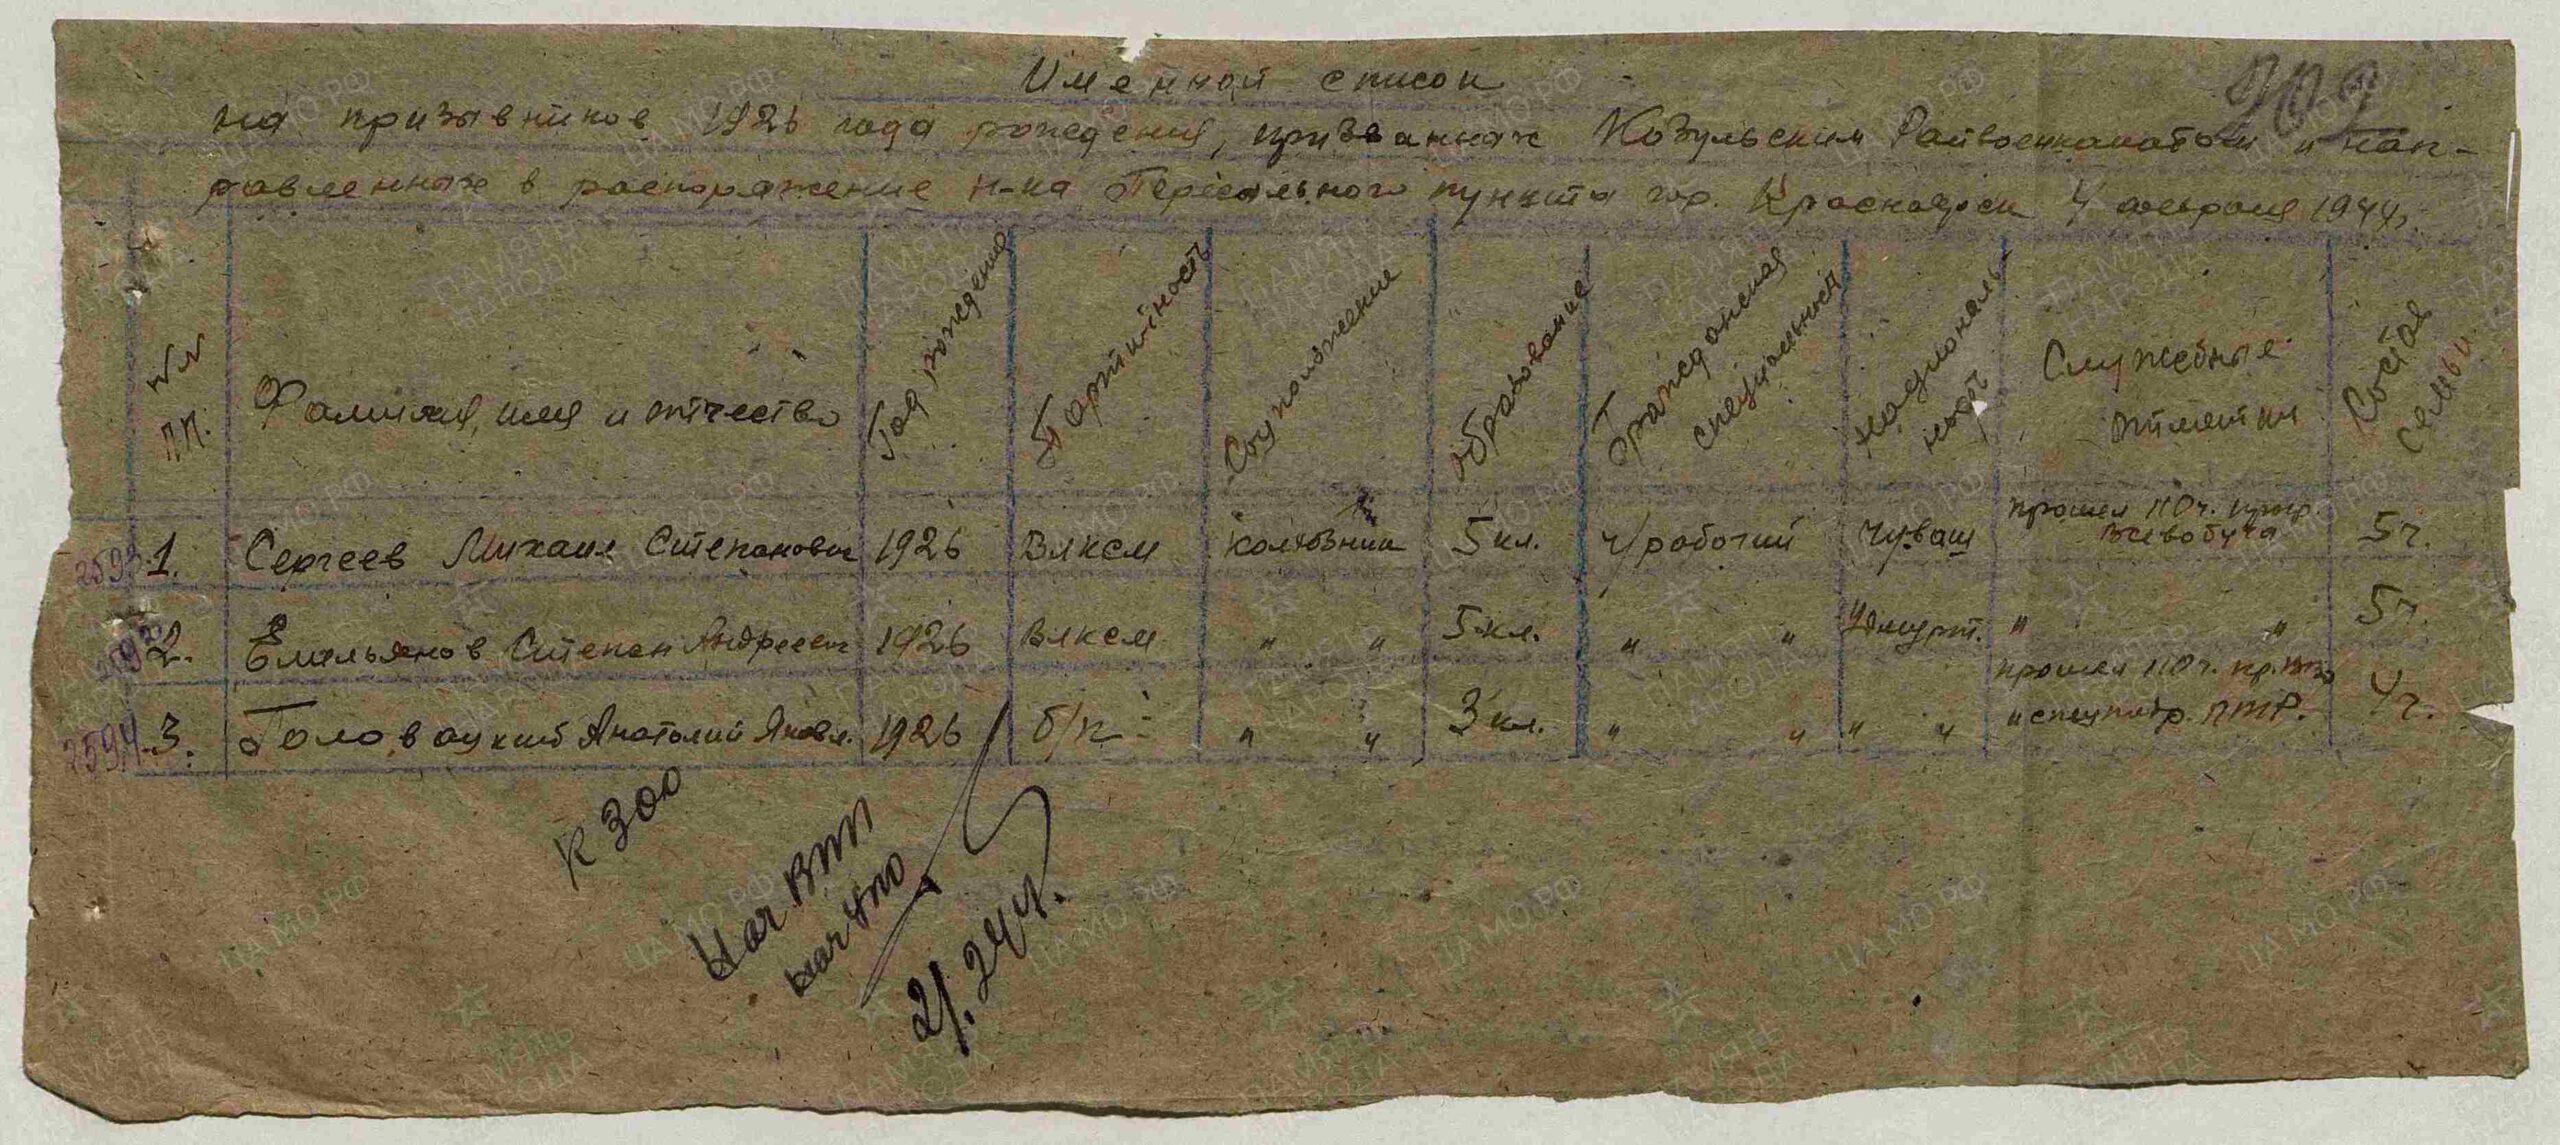 Именной список
на призывников 1926 года рождения, призванных Козульским Райвоенкоматом и нап-
равленных в распоряжение н-ка Пересыльного пункта гор. Красноярск 4 февраля 1944г.
№№ пп.
Фамилия, имя и отчество
Год рождения
Партийность
Соцположение
образование
Гражданская специальность
национальность
Служебные отметки
Состав семьи
2593 1. Сергеев Михаил Степанович 1926 ВЛКСМ колхозник 5 кл. ч/рабочий чуваш прошел 110ч. прогр. Всевобуча 5ч.
2. Емельянов Степан Андреевич 1926 ВЛКСМ " " 5 кл. " " Удмурт. " " 5ч.
2594 3. Головацкий Анатолий Яковл. 1926 б/п " " 3 кл. " " " " прошел 110ч. пр. ВВО и спецподр. ПТР. 4ч.
к 300
Нач ВПП